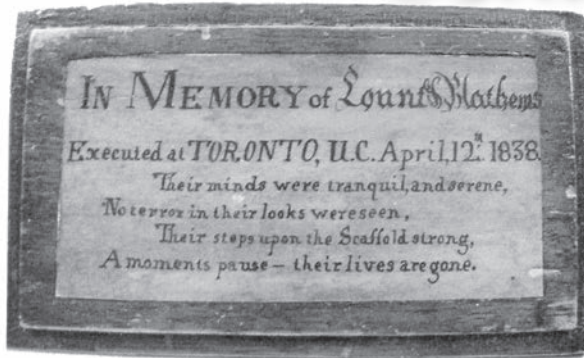 IN MEMORY of Lount & Mathews
Executed at TORONTO, U.C. April, 12th. 1838.
Their minds were tranquil, and serene,
No terror in their looks were seen,
Their steps upon the Scaffold strong,
A moments pause – their lives are gone.